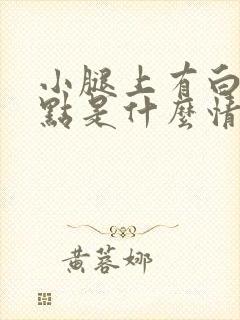 小腿上有白
點是什麼情
黃蓉娜